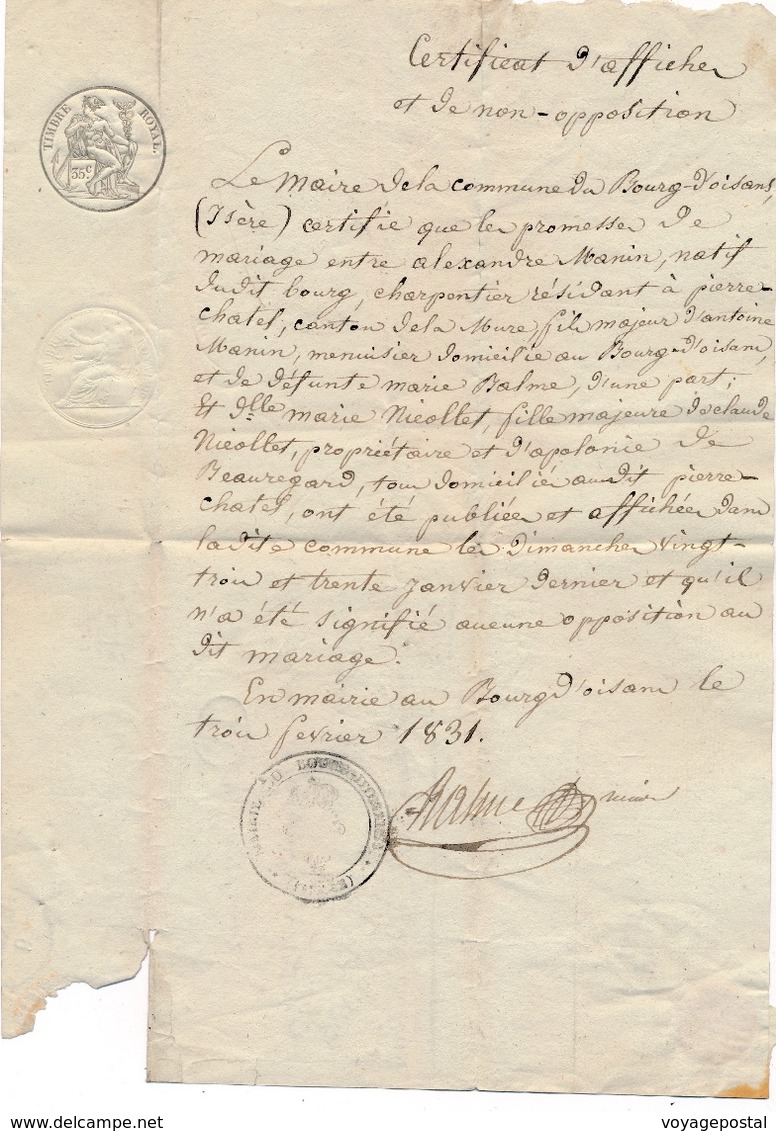 Certificat d'affiches
et de non-opposition
TIMBRE ROYAL.
35.c
Le Maire de la commune du Bourg-d'oisans,
(Isère) certifie que les promesses de
mariage entre alexandre Manin, natif
dudit bourg, charpentier résidant à pierre-
chatel, canton de la Mure, fils majeur d'antoine
Manin, menuisier domicilié au Bourg-d'oisans,
et de défunte marie Balme, d'une part;
Et dlle marie Nicollet, fille majeure de claude
Nicollet, propriétaire et d'apolonie de
Beauregard, tous domiciliés audit pierre-
chatel, ont été publiées et affichées dans
ladite commune les dimanches vingt-
trois et trente janvier dernier et qu'il
n'a été signifié aucune opposition au
dit mariage.
En mairie au Bourg d'oisans le
trois fevrier 1831.
maire
MAIRIE DU BOURG-D'OISANS
(ISÈRE)
www.delcampe.net
voyagepostal